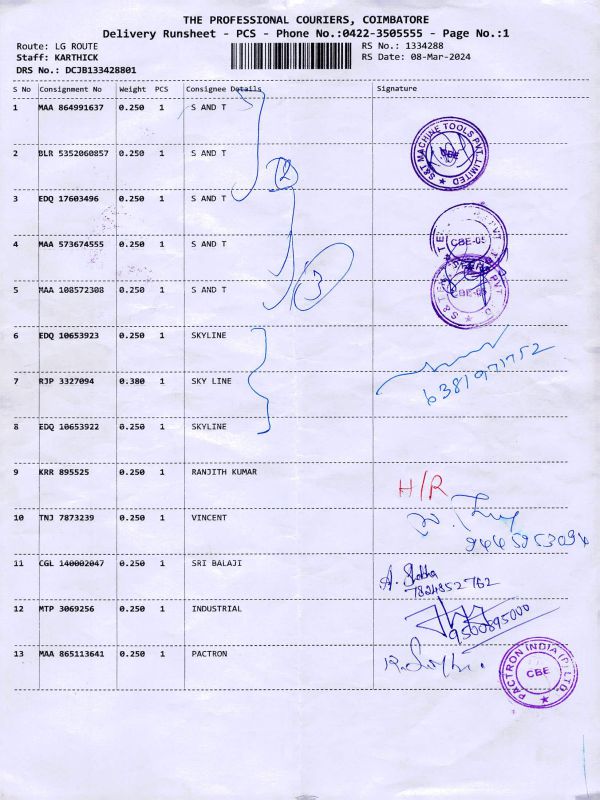 THE PROFESSIONAL COURIERS, COIMBATORE
Delivery Runsheet - PCS - Phone No.:0422-3505555 - Page No.:1
Route: LG ROUTE RS No.: 1334288
Staff: KARTHICK RS Date: 08-Mar-2024
DRS No.: DCJB133428801
S No Consignment No Weight PCS Consignee Details Signature
1 MAA 864991637 0.250 1 S AND T
2 BLR 5352060857 0.250 1 S AND T
S&T MACHINE TOOLS PVT. LIMITED
CBE
2
3 EDQ 17603496 0.250 1 S AND T
4 MAA 573674555 0.250 1 S AND T
CBE-05
5 MAA 108572308 0.250 1 S AND T
3
6 EDQ 10653923 0.250 1 SKYLINE
7 RJP 3327094 0.380 1 SKY LINE
6381971752
8 EDQ 10653922 0.250 1 SKYLINE
9 KRR 895525 0.250 1 RANJITH KUMAR
H/R
10 TNJ 7873239 0.250 1 VINCENT
11 CGL 140002047 0.250 1 SRI BALAJI
A. Shobha
7824852762
12 MTP 3069256 0.250 1 INDUSTRIAL
9500895000
13 MAA 865113641 0.250 1 PACTRON
PACTRON INDIA (P) LTD.
CBE